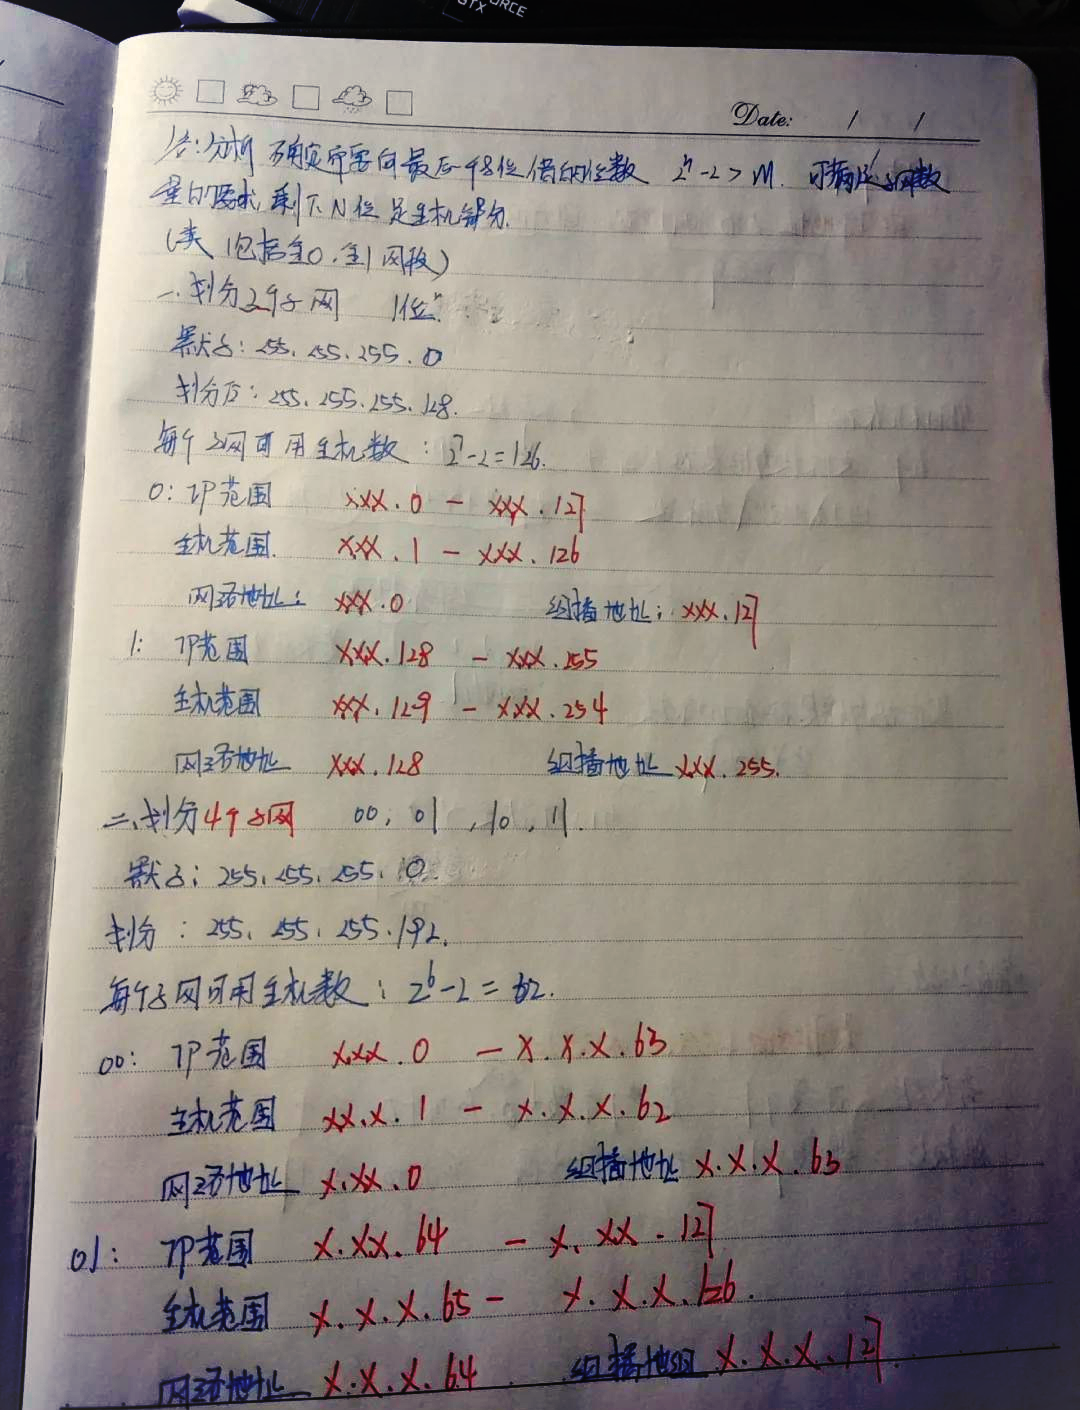 RCE
GTX
Date: / /
分析 确定需要向最后一个8位借的位数 2ⁿ-2>M. 可满足子网数
量的要求, 剩下N位是主机部分.
(实 包括全0.全1网段)
一.划分2个子网 1位
默认: 255.255.255.0
划分后: 255.255.255.128.
每个子网可用主机数: 2⁷-2=126.
0: IP范围 xxx.0 - xxx.127
主机范围. xxx.1 - xxx.126
网络地址: xxx.0 组播地址: xxx.127
1: IP范围 xxx.128 - xxx.255
主机范围 xxx.129 - xxx.254
网络地址 xxx.128 组播地址 xxx.255.
二.划分4个子网 00, 01, 10, 11.
默认: 255.255.255.0.
划分: 255.255.255.192.
每个子网可用主机数: 2⁶-2=62.
00: IP范围 x.xx.0 - x.x.x.63
主机范围 xx.x.1 - x.x.x.62
网络地址 x.xx.0 组播地址 x.x.x.63
01: IP范围 x.xx.64 - x.xx.127
主机范围 x.x.x.65 - x.x.x.126.
网络地址 x.x.x.64 组播地 x.x.x.127.